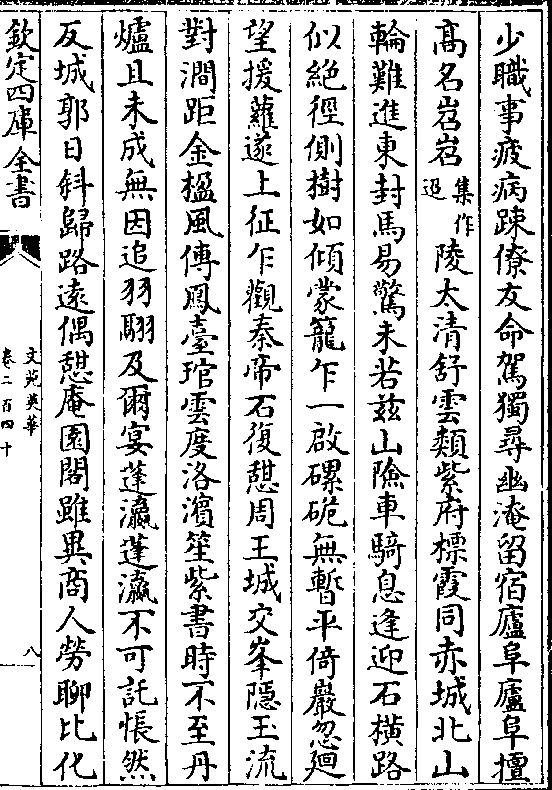 少職事疲病疎僚友命駕獨尋幽淹留宿廬阜廬阜擅
髙名岧岧集作迢陵太清舒雲類紫府標霞同赤城北山
輪難進東封馬易驚未若兹山險車騎息逢迎石橫路
似絶徑側樹如傾蒙籠乍一啟磥硊無暫平倚巖忽廻
望援蘿遂上征乍觀秦帝石復憩周王城交峯隱玉流
對澗距金楹風傳鳳臺琯雲度洛濱笙紫書時不至丹
爐且未成無因追羽騆及爾宴蓬瀛蓬瀛不可託悵然
反城郭日斜歸路逺偶憇庵園閣雖異商人勞聊比化
欽定四庫全書
文苑英華
卷二百四十
八